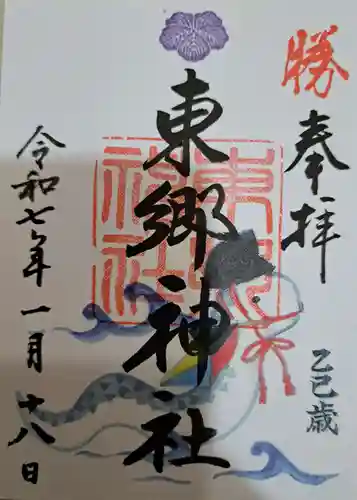 勝
奉拝
乙巳歳
東郷神社
東郷神社
令和七年一月十八日